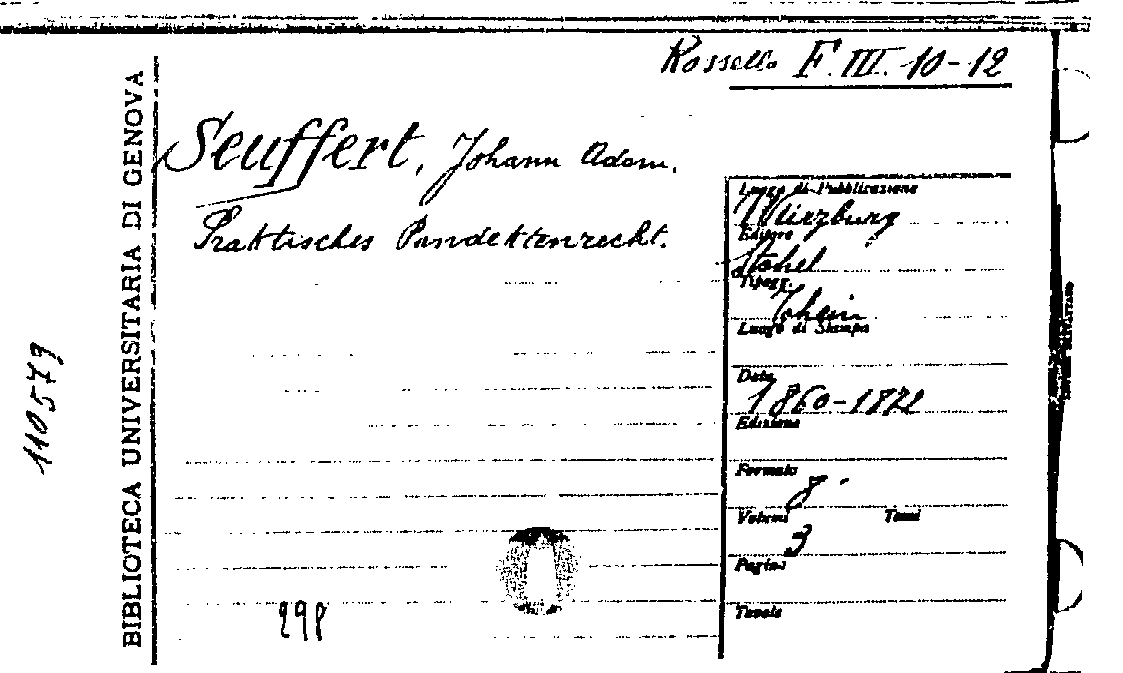 Rossello F. III. 10-12
BIBLIOTECA UNIVERSITARIA DI GENOVA
110579
Seuffert, Johann Adam.
Praktisches Pandektenrecht.
Luogo di Pubblicazione
Würzburg
Editore
Stahel
Tipogr.
Thein
Luogo di Stampa
Data
1860-1872
Edizione
Formato
8°
Volumi Tomi
3
Pagine
Tavole
298